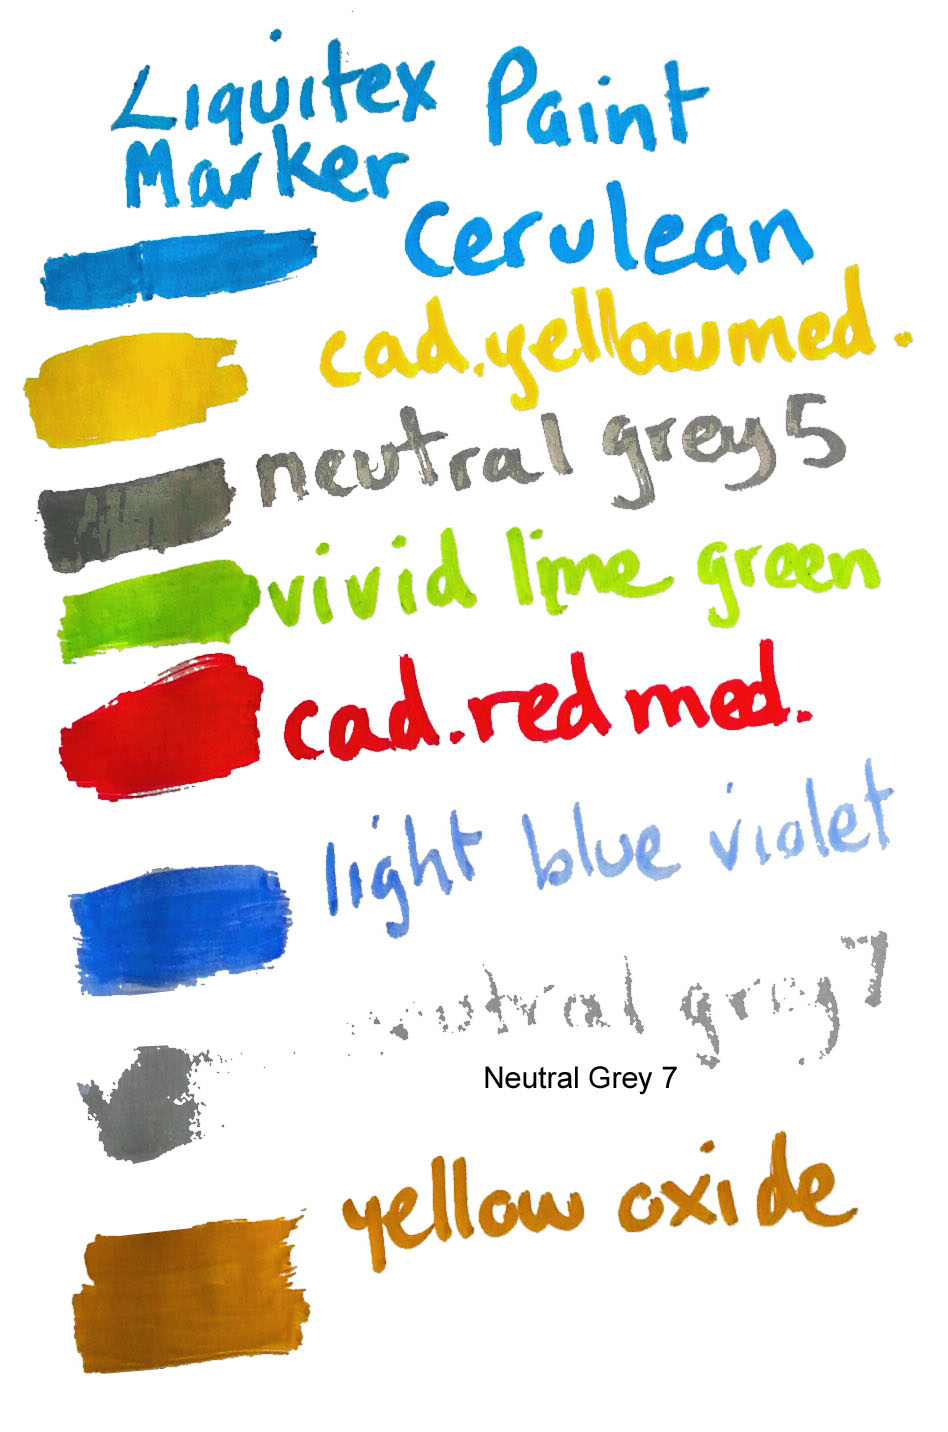 Liquitex Paint
Marker
Cerulean
cad. yellow med.
neutral grey 5
vivid lime green
cad. red med.
light blue violet
neutral grey 7
Neutral Grey 7
yellow oxide